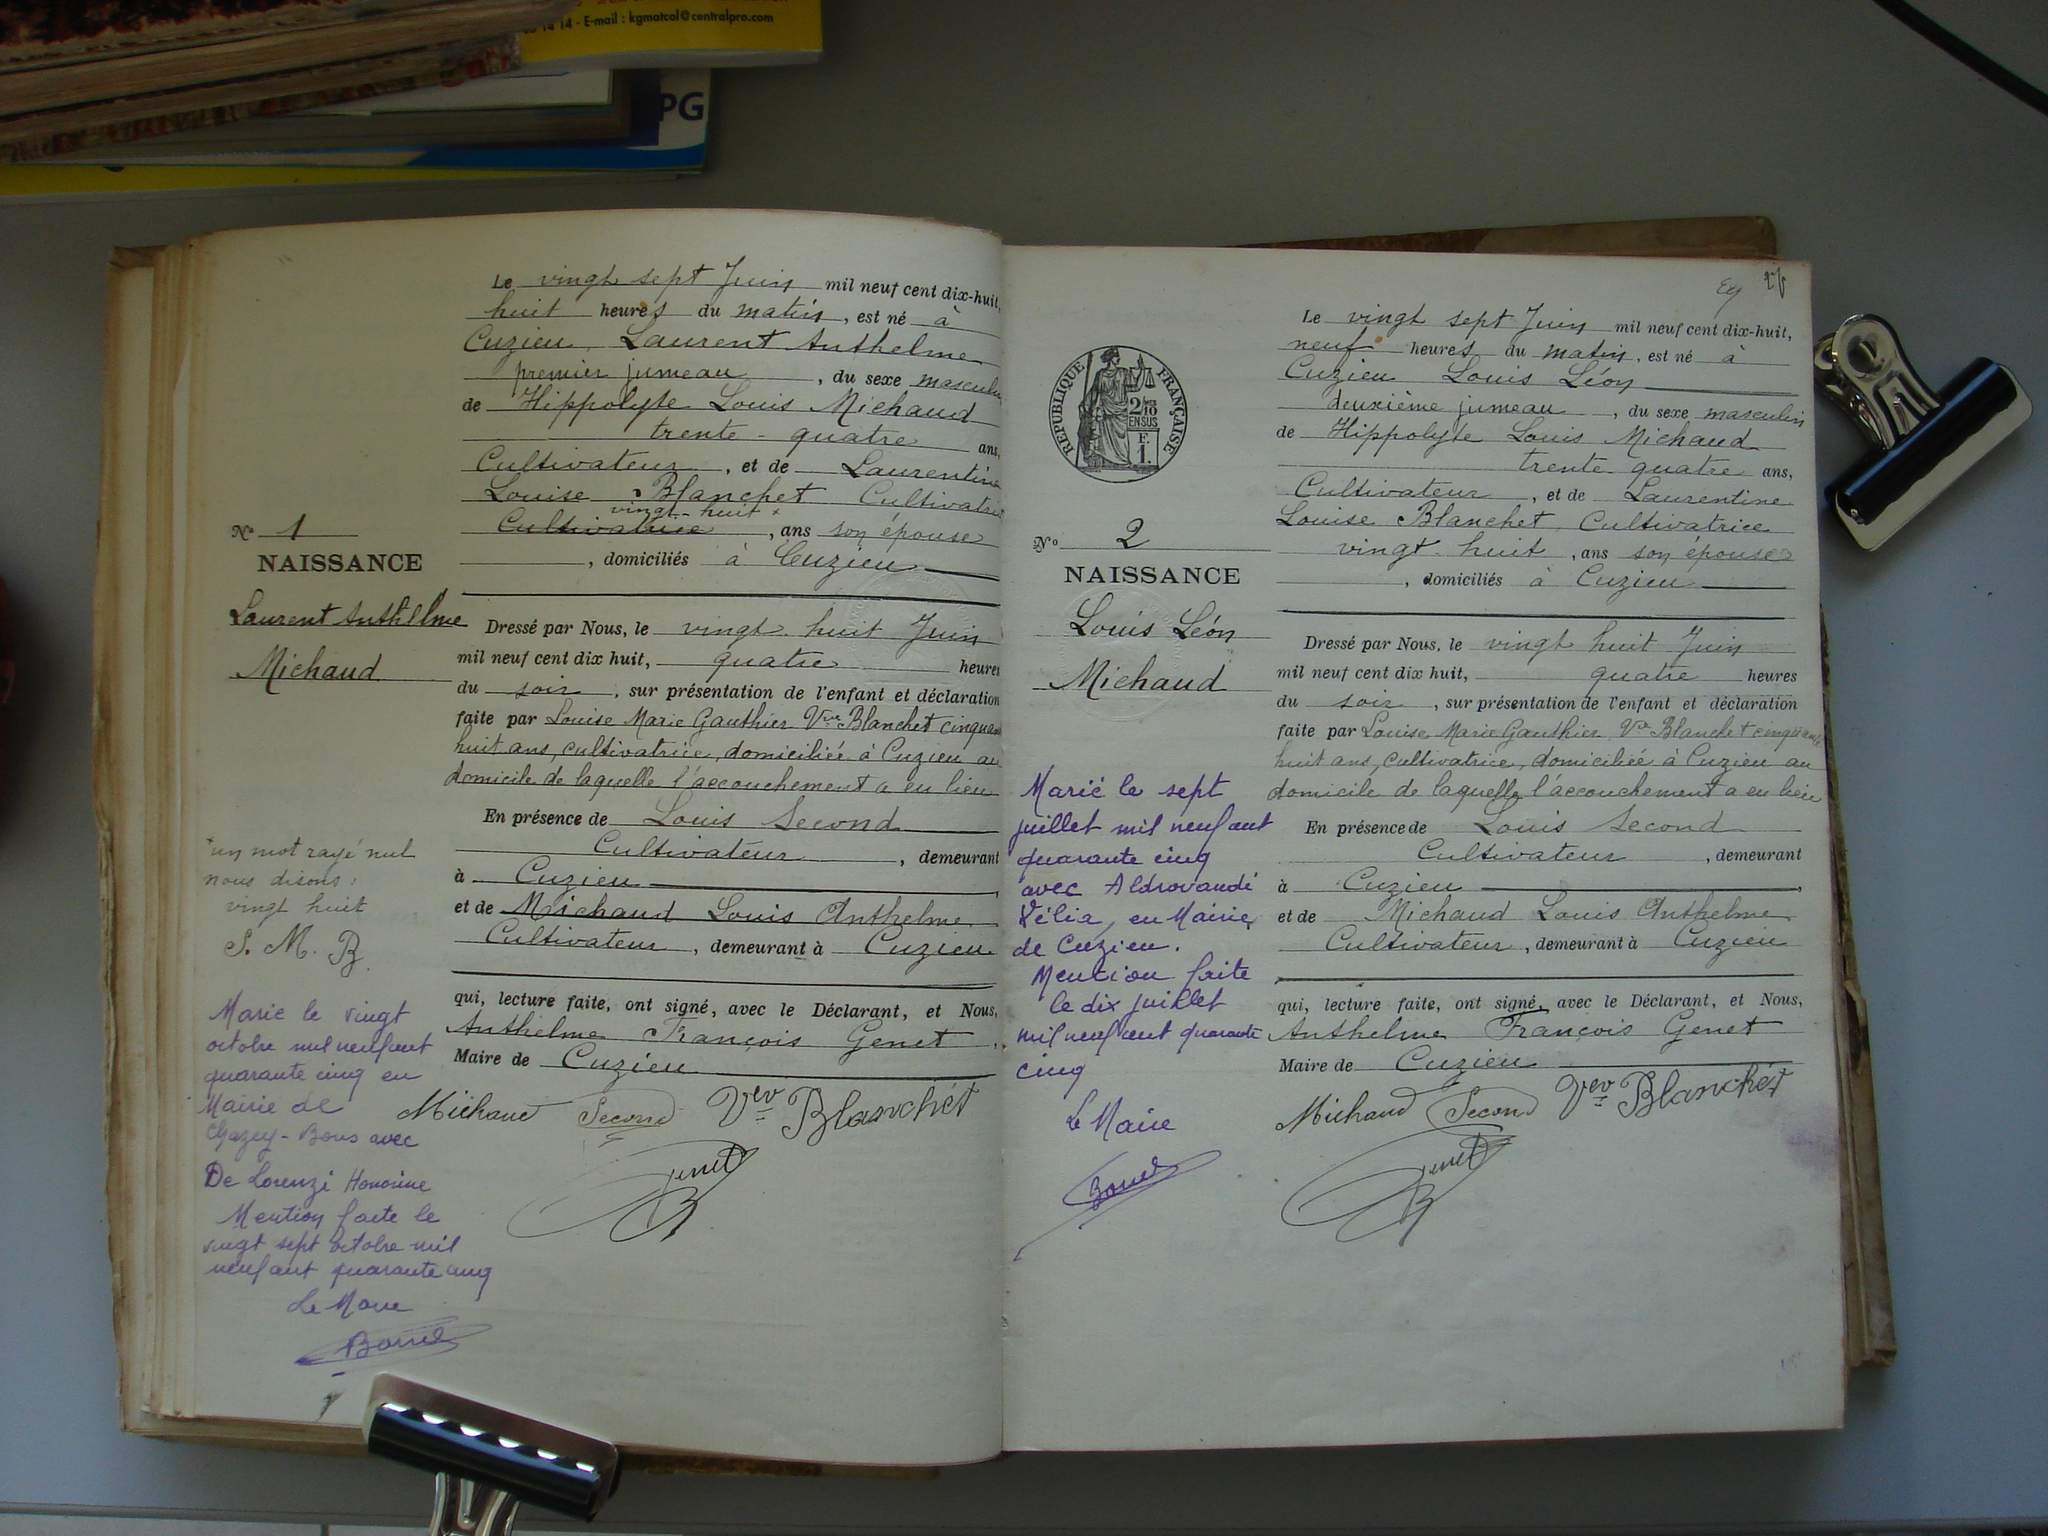 14 14 - E-mail : kgmatcol@centralpro.com
PG
Le vingt sept Juin mil neuf cent dix-huit,
huit heures du matin, est né à
Cuzieu, Laurent Anthelme
premier jumeau, du sexe masculin
de Hippolyte Louis Michaud
trente-quatre ans,
Cultivateur, et de Laurentine
Louise Blanchet Cultivatrice
vingt-huit x
Cultivatrice, ans son épouse
, domiciliés à Cuzieu
N° 1
NAISSANCE
Laurent Anthelme
Michaud
Dressé par Nous, le vingt huit Juin
mil neuf cent dix huit, quatre heures
du soir, sur présentation de l'enfant et déclaration
faite par Louise Marie Gauthier Vve Blanchet cinquante
huit ans, cultivatrice, domiciliée à Cuzieu au
domicile de laquelle l'accouchement a eu lieu
En présence de Louis Second
Cultivateur, demeurant
à Cuzieu,
et de Michaud Louis Anthelme
Cultivateur, demeurant à Cuzieu
qui, lecture faite, ont signé, avec le Déclarant, et Nous,
Anthelme François Genet,
Maire de Cuzieu
Michaud Second Vev Blanchet
Genet
un mot rayé nul
nous disons :
vingt huit
S. M. B
Marié le vingt
octobre mil neuf cent
quarante cinq en
Mairie de
Chazey-Bons avec
De Lorenzi Honorine
Mention faite le
vingt sept octobre mil
neuf cent quarante cinq
Le Maire
26
RÉPUBLIQUE FRANÇAISE
2/10
EN SUS
F.
1.
Le vingt sept Juin mil neuf cent dix-huit,
neuf heures du matin, est né à
Cuzieu Louis Léon
deuxième jumeau, du sexe masculin
de Hippolyte Louis Michaud
trente-quatre ans,
Cultivateur, et de Laurentine
Louise Blanchet, Cultivatrice
vingt-huit, ans son épouse
, domiciliés à Cuzieu
N° 2
NAISSANCE
Louis Léon
Michaud
Dressé par Nous, le vingt huit Juin
mil neuf cent dix huit, quatre heures
du soir, sur présentation de l'enfant et déclaration
faite par Louise Marie Gauthier Vve Blanchet cinquante
huit ans, cultivatrice, domiciliée à Cuzieu au
domicile de laquelle l'accouchement a eu lieu
En présence de Louis Second
Cultivateur, demeurant
à Cuzieu,
et de Michaud Louis Anthelme
Cultivateur, demeurant à Cuzieu
qui, lecture faite, ont signé, avec le Déclarant, et Nous,
Anthelme François Genet
Maire de Cuzieu
Michaud Second Vev Blanchet
Genet
Marié le sept
juillet mil neuf cent
quarante cinq
avec Aldrovandi
Vélia, en Mairie
de Cuzieu.
Mention faite
le dix juillet
mil neuf cent quarante
cinq
Le Maire